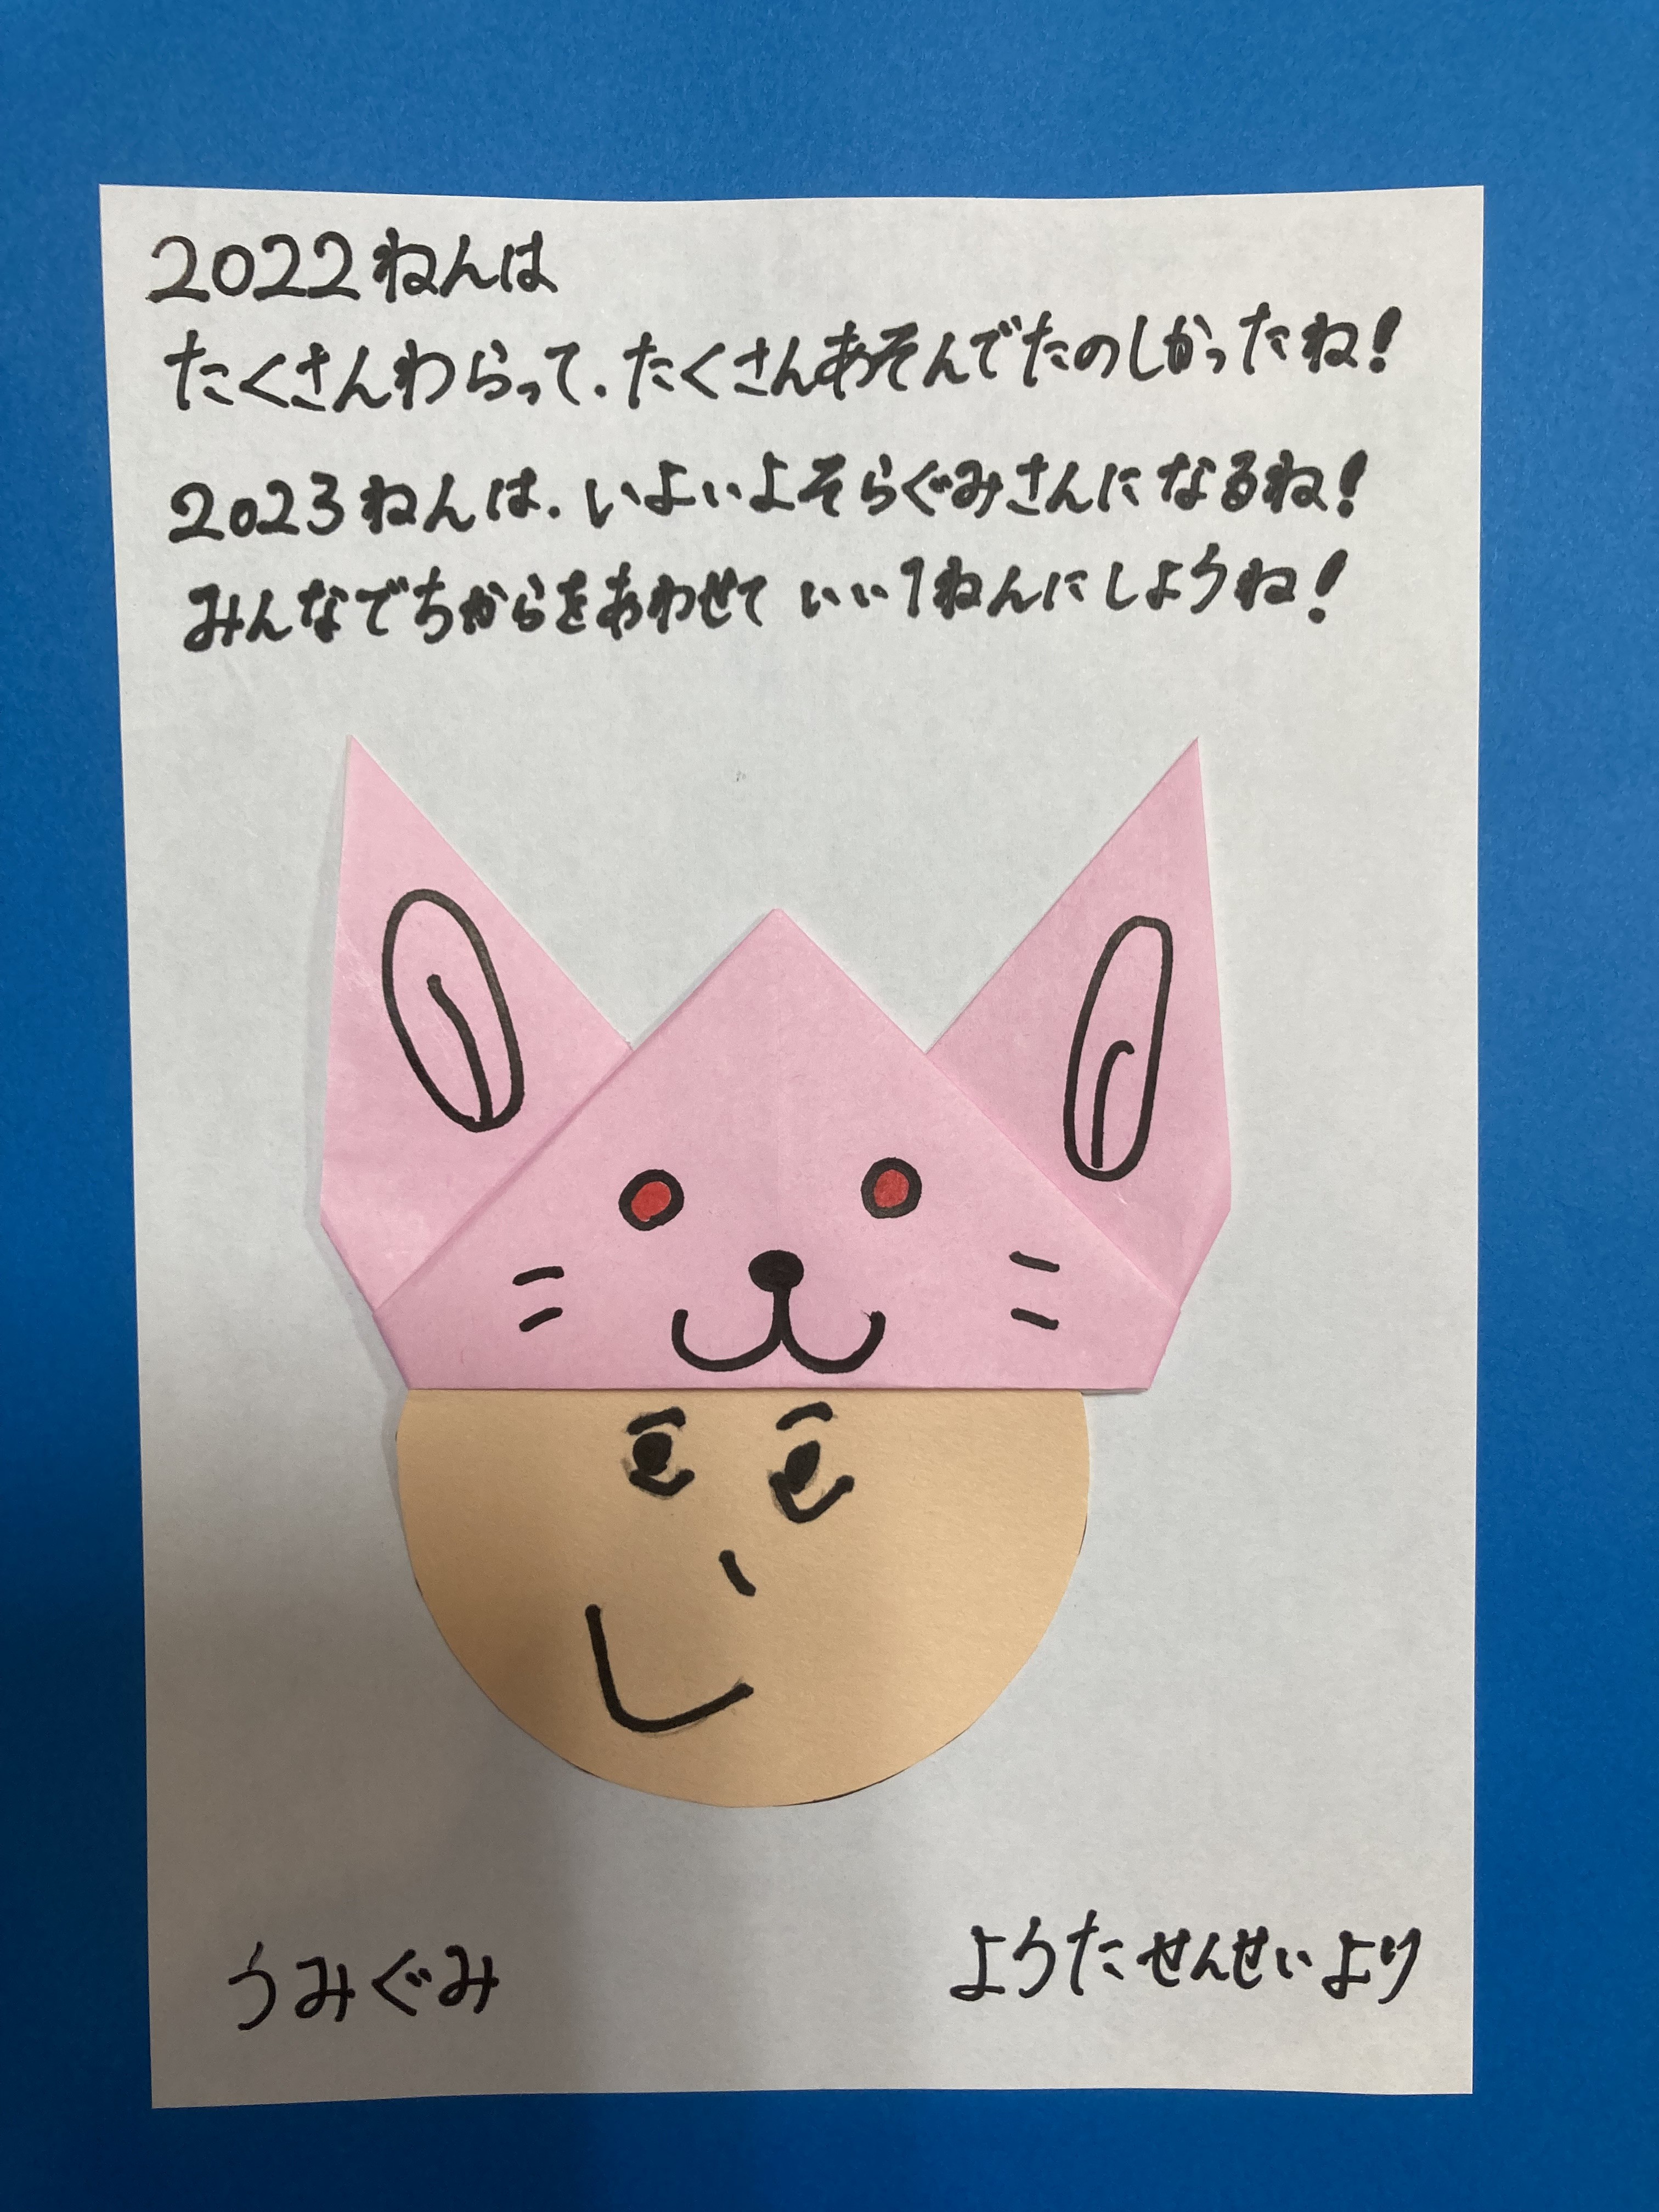 2022ねんは
たくさんわらって.たくさんあそんでたのしかったね!
2023ねんは.いよいよそらぐみさんになるね!
みんなでちからをあわせて いい1ねんにしようね!
うみぐみ
ようたせんせいより